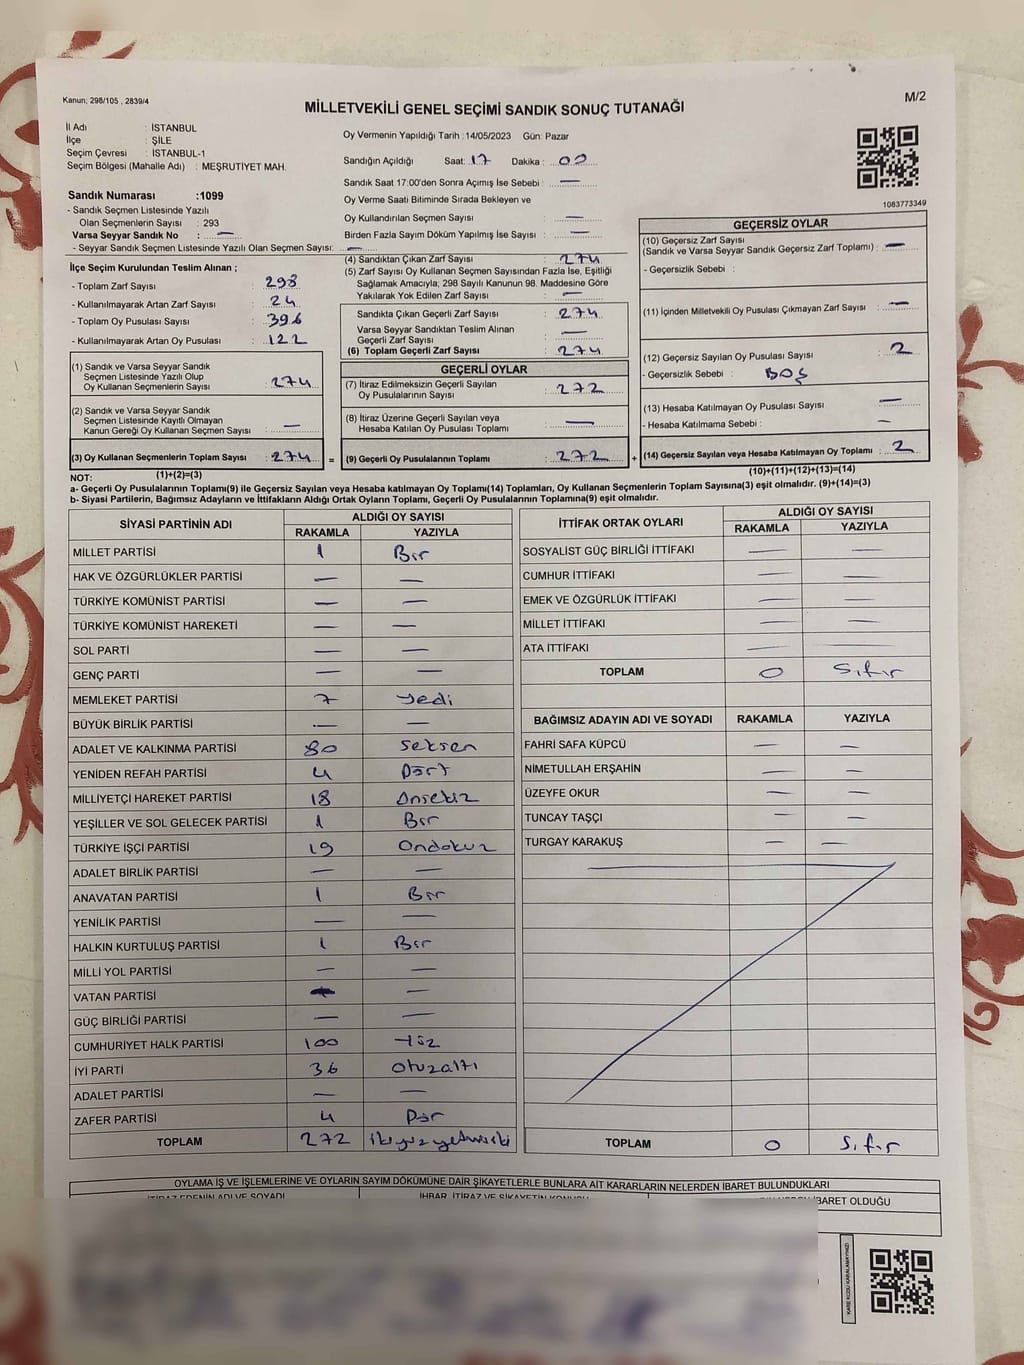 Kanun; 298/105 , 2839/4
M/2
MİLLETVEKİLİ GENEL SEÇİMİ SANDIK SONUÇ TUTANAĞI
İl Adı : İSTANBUL
İlçe : ŞİLE
Seçim Çevresi : İSTANBUL-1
Seçim Bölgesi (Mahalle Adı) : MEŞRUTİYET MAH.
Sandık Numarası :1099
- Sandık Seçmen Listesinde Yazılı
Olan Seçmenlerin Sayısı : 293
Varsa Seyyar Sandık No : —
- Seyyar Sandık Seçmen Listesinde Yazılı Olan Seçmen Sayısı: —
Oy Vermenin Yapıldığı Tarih :14/05/2023 Gün: Pazar
Sandığın Açıldığı Saat: 17 Dakika : 00
Sandık Saat 17:00'den Sonra Açımış İse Sebebi : —
Oy Verme Saati Bitiminde Sırada Bekleyen ve
Oy Kullandırılan Seçmen Sayısı : —
Birden Fazla Sayım Döküm Yapılmış İse Sayısı : —
1083773349
İlçe Seçim Kurulundan Teslim Alınan ;
- Toplam Zarf Sayısı : 298
- Kullanılmayarak Artan Zarf Sayısı : 24
- Toplam Oy Pusulası Sayısı : 396
- Kullanılmayarak Artan Oy Pusulası : 122
(1) Sandık ve Varsa Seyyar Sandık
Seçmen Listesinde Yazılı Olup
Oy Kullanan Seçmenlerin Sayısı : 274
(2) Sandık ve Varsa Seyyar Sandık
Seçmen Listesinde Kayıtlı Olmayan
Kanun Gereği Oy Kullanan Seçmen Sayısı : —
(3) Oy Kullanan Seçmenlerin Toplam Sayısı : 274 =
(1)+(2)=(3)
(4) Sandıktan Çıkan Zarf Sayısı : 274
(5) Zarf Sayısı Oy Kullanan Seçmen Sayısından Fazla İse, Eşitliği
Sağlamak Amacıyla; 298 Sayılı Kanunun 98. Maddesine Göre
Yakılarak Yok Edilen Zarf Sayısı : —
Sandıkta Çıkan Geçerli Zarf Sayısı : 274
Varsa Seyyar Sandıktan Teslim Alınan
Geçerli Zarf Sayısı : —
(6) Toplam Geçerli Zarf Sayısı : 274
GEÇERLİ OYLAR
(7) İtiraz Edilmeksizin Geçerli Sayılan
Oy Pusulalarının Sayısı : 272
(8) İtiraz Üzerine Geçerli Sayılan veya
Hesaba Katılan Oy Pusulası Toplamı : —
(9) Geçerli Oy Pusulalarının Toplamı : 272 +
GEÇERSİZ OYLAR
(10) Geçersiz Zarf Sayısı
(Sandık ve Varsa Seyyar Sandık Geçersiz Zarf Toplamı) : —
- Geçersizlik Sebebi :
(11) İçinden Milletvekili Oy Pusulası Çıkmayan Zarf Sayısı : —
(12) Geçersiz Sayılan Oy Pusulası Sayısı : 2
- Geçersizlik Sebebi : BOŞ
(13) Hesaba Katılmayan Oy Pusulası Sayısı : —
- Hesaba Katılmama Sebebi : —
(14) Geçersiz Sayılan veya Hesaba Katılmayan Oy Toplamı : 2
(10)+(11)+(12)+(13)=(14)
NOT:
a- Geçerli Oy Pusulalarının Toplamı(9) ile Geçersiz Sayılan veya Hesaba katılmayan Oy Toplamı(14) Toplamları, Oy Kullanan Seçmenlerin Toplam Sayısına(3) eşit olmalıdır. (9)+(14)=(3)
b- Siyasi Partilerin, Bağımsız Adayların ve İttifakların Aldığı Ortak Oyların Toplamı, Geçerli Oy Pusulalarının Toplamına(9) eşit olmalıdır.
SİYASİ PARTİNİN ADI ALDIĞI OY SAYISI
RAKAMLA YAZIYLA
MİLLET PARTİSİ 1 Bir
HAK VE ÖZGÜRLÜKLER PARTİSİ — —
TÜRKİYE KOMÜNİST PARTİSİ — —
TÜRKİYE KOMÜNİST HAREKETİ — —
SOL PARTİ — —
GENÇ PARTİ — —
MEMLEKET PARTİSİ 7 yedi
BÜYÜK BİRLİK PARTİSİ — —
ADALET VE KALKINMA PARTİSİ 80 seksen
YENİDEN REFAH PARTİSİ 4 Dört
MİLLİYETÇİ HAREKET PARTİSİ 18 Onsekiz
YEŞİLLER VE SOL GELECEK PARTİSİ 1 Bir
TÜRKİYE İŞÇİ PARTİSİ 19 Ondokuz
ADALET BİRLİK PARTİSİ — —
ANAVATAN PARTİSİ 1 Bir
YENİLİK PARTİSİ — —
HALKIN KURTULUŞ PARTİSİ 1 Bir
MİLLİ YOL PARTİSİ — —
VATAN PARTİSİ — —
GÜÇ BİRLİĞİ PARTİSİ — —
CUMHURİYET HALK PARTİSİ 100 Yüz
İYİ PARTİ 36 otuzaltı
ADALET PARTİSİ — —
ZAFER PARTİSİ 4 Dör
TOPLAM 272 ikiyüzyetmişiki
İTTİFAK ORTAK OYLARI ALDIĞI OY SAYISI
RAKAMLA YAZIYLA
SOSYALİST GÜÇ BİRLİĞİ İTTİFAKI — —
CUMHUR İTTİFAKI — —
EMEK VE ÖZGÜRLÜK İTTİFAKI — —
MİLLET İTTİFAKI — —
ATA İTTİFAKI — —
TOPLAM 0 Sıfır
BAĞIMSIZ ADAYIN ADI VE SOYADI RAKAMLA YAZIYLA
FAHRİ SAFA KÜPCÜ — —
NİMETULLAH ERŞAHİN — —
ÜZEYFE OKUR — —
TUNCAY TAŞÇI — —
TURGAY KARAKUŞ — —
TOPLAM 0 Sıfır
OYLAMA İŞ VE İŞLEMLERİNE VE OYLARIN SAYIM DÖKÜMÜNE DAİR ŞİKAYETLERLE BUNLARA AİT KARARLARIN NELERDEN İBARET BULUNDUKLARI
İTİRAZ EDENİN ADI VE SOYADI İHBAR, İTİRAZ VE ŞİKAYETİN KONUSU İBARET OLDUĞU
KARE KODU KARALAMAYINIZ!